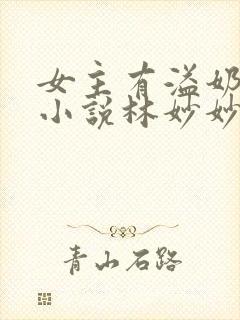 女主有溢奶
小说林妙妙
青山石路